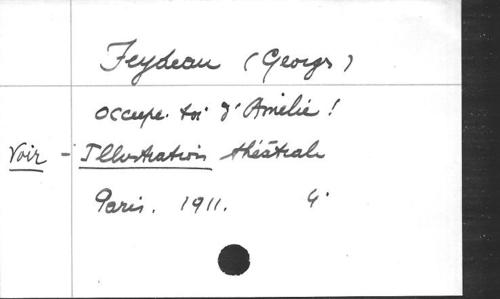 Feydeau (Georges)
Occupe-toi d'Amélie !
Voir - Illustration théâtrale
Paris. 1911. 4°